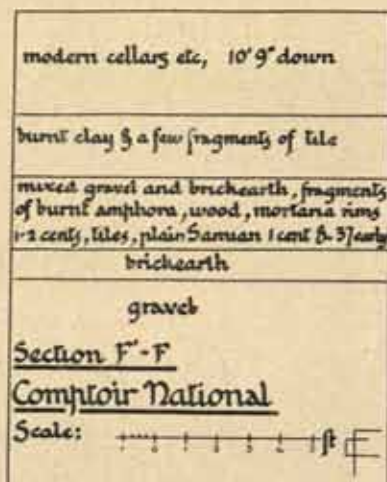 modern cellars etc, 10' 9" down
burnt clay & a few fragments of tile
mixed gravel and brickearth, fragments
of burnt amphora, wood, mortaria rims
1-2 cents, tiles, plain Samian 1 cent &. 37 early
brickearth
gravel
Section F'-F
Comptoir National
Scale:
ft